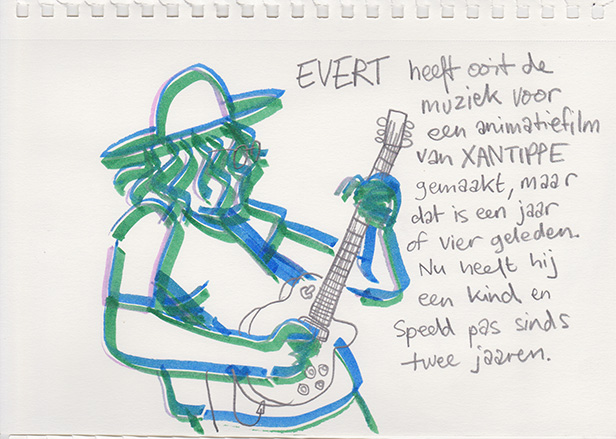 EVERT heeft ooit de
muziek voor
een animatiefilm
van XANTIPPE
gemaakt, maar
dat is een jaar
of vier geleden.
Nu heeft hij
een kind en
speeld pas sinds
twee jaaren.